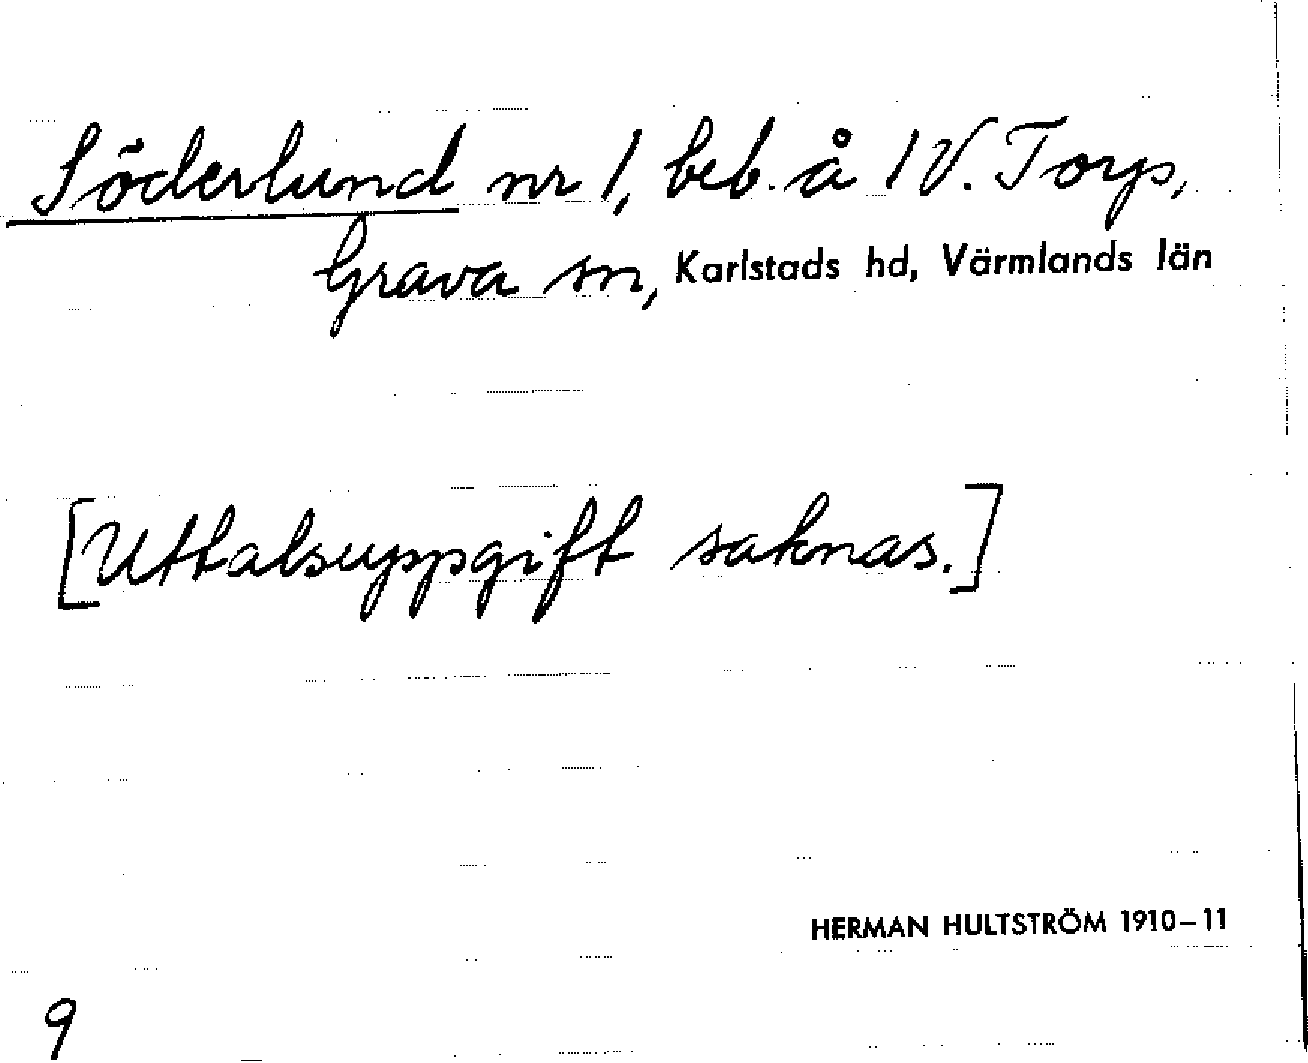 Söderlund nr 1, beb. å 1 V. Torp,
Grava sn, Karlstads hd, Värmlands län
[Uttalsuppgift saknas.]
HERMAN HULTSTRÖM 1910–11
9